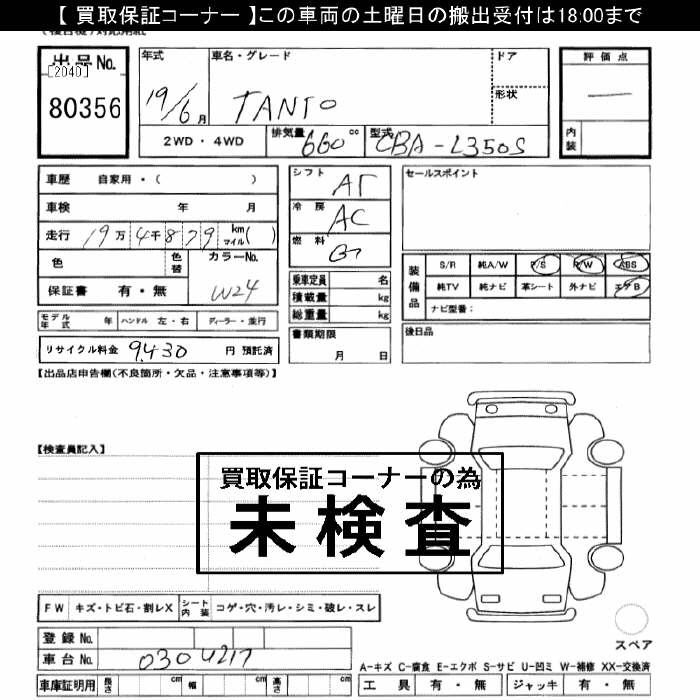 【 買取保証コーナー 】この車両の土曜日の搬出受付は18:00まで
出品No.
[2040]
80356
年式
19/6月
車名・グレード
TANTO
ドア
形状
評価点
—
内装
2WD・4WD
排気量 660 cc
型式 CBA-L350S
車歴 自家用・( )
車検 年 月
走行 19万4千879 km マイル( )
色
色替
カラーNo.
W24
保証書 有・無
シフト AT
冷房 AC
燃料
乗車定員 名
積載量 kg
総重量 kg
書類期限
月 日
セールスポイント
装備品
S/R 純A/W P/S P/W ABS
純TV 純ナビ 革シート 外ナビ エアB
ナビ型番:
後日品
モデル年式 年 ハンドル 左・右 ディーラー・並行
リサイクル料金 9,430 円 預託済
【出品店申告欄(不良箇所・欠品・注意事項等)】
【検査員記入】
買取保証コーナーの為
未検査
FW キズ・トビ石・割レX シート内装 コゲ・穴・汚レ・シミ・破レ・スレ
登録No.
車台No. 0304217
車庫証明用 長さ cm 幅 cm 高さ cm
スペア
A-キズ C-腐食 E-エクボ S-サビ U-凹ミ W-補修 XX-交換済
工具 有・無 ジャッキ 有・無